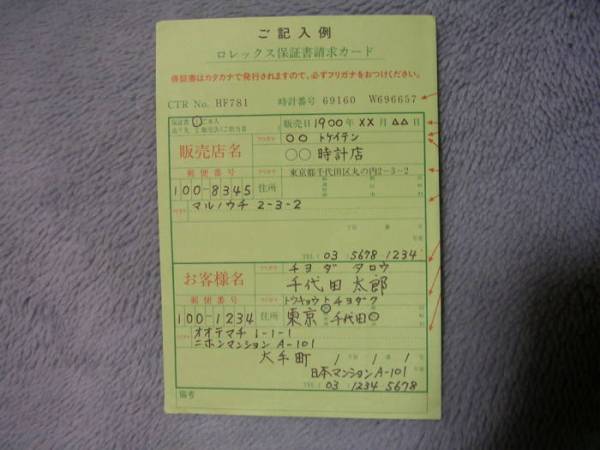 ご記入例
ロレックス保証書請求カード
保証書はカタカナで発行されますので、必ずフリガナをおつけください。
CTR No. HF781 時計番号 69160 W696657
販売日 1900年 XX月 △△日
○○ トケイテン
販売店名 ○○ 時計店
郵便番号 東京都千代田区丸の内2-3-2
100-8345 住所
マルノウチ 2-3-2
TEL 03 5678 1234
チヨダ タロウ
お客様名 千代田 太郎
郵便番号 トウキョウト チヨダク
100-1234 住所 東京 千代田
オオテマチ 1-1-1
ニホンマンション A-101
大手町 1 1 1
日本マンションA-101
TEL 03 1234 5678
備考